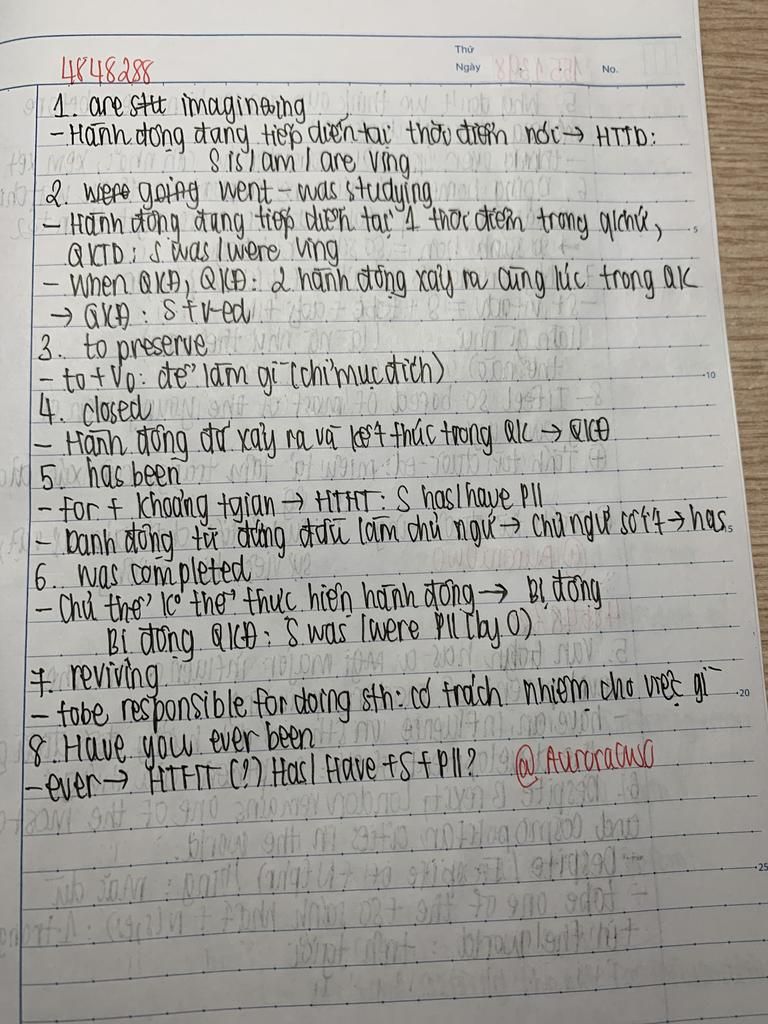 Thứ
Ngày No.
4848288
1. are stu imagineing
- Hành động đang tiếp diễn tại thời điểm nói → HTTD:
S is/am/are Ving
2. were going went - was studying
- Hành động đang tiếp diễn tại 1 thời điểm trong qkhứ,
QKTD: S was/were ving
- when QKĐ, QKĐ: 2 hành động xảy ra cùng lúc trong QK
→ QKĐ: S+v-ed
3. to preserve
- to + Vo: để làm gì (chỉ mục đích)
10
4. closed
- Hành động đã xảy ra và kết thúc trong QK → QKĐ
5. has been
- for + khoảng tgian → HTHT: S has/have PII
- Danh động từ đứng đầu làm chủ ngữ → chủ ngữ số ít → has
6. was completed
- Chủ thể ko thể thực hiện hành động → Bị động
Bị động QKĐ: S was/were PII (by O)
7. reviving
- tobe responsible for doing sth: có trách nhiệm cho việc gì
20
8. Have you ever been
- ever → HTHT (?) Has/Have + S + PII? @Auroracwo
25